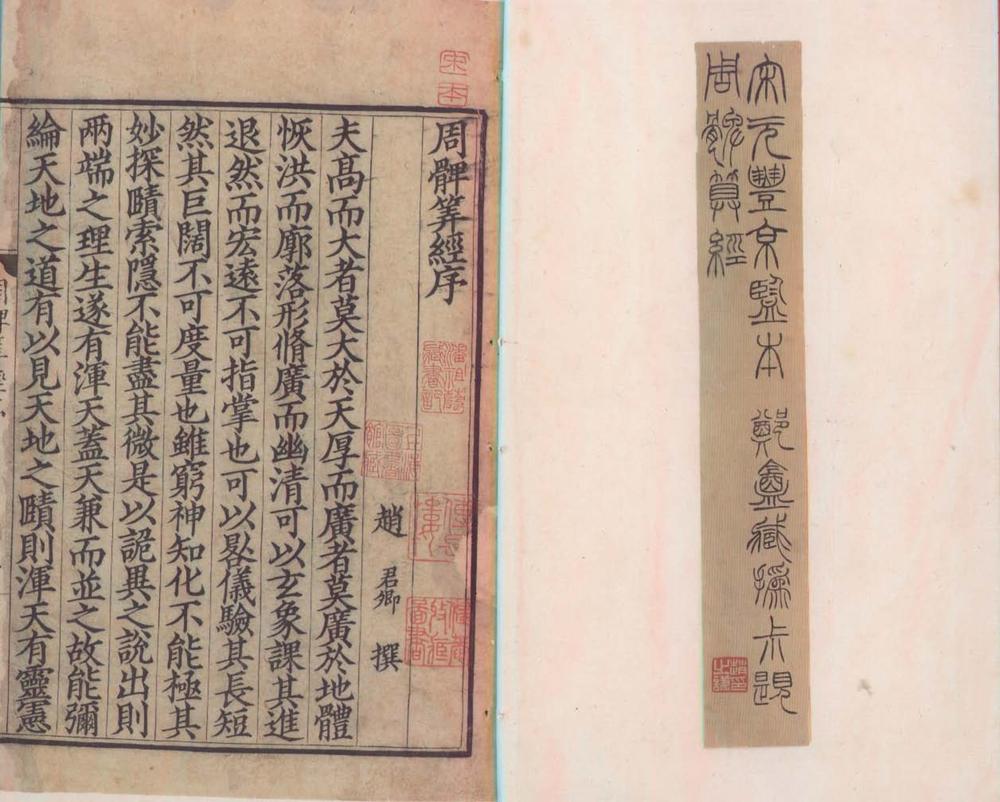 宋元豐京監本 鄭盦藏 撝尗題
周髀算經
周髀筭經序
趙 君卿 撰
夫高而大者莫大於天厚而廣者莫廣於地體
恢洪而廓落形脩廣而幽清可以玄象課其進
退然而宏遠不可指掌也可以晷儀驗其長短
然其巨闊不可度量也雖窮神知化不能極其
妙探賾索隱不能盡其微是以詭異之說出則
兩端之理生遂有渾天蓋天兼而並之故能彌
綸天地之道有以見天地之賾則渾天有靈憲
宋本